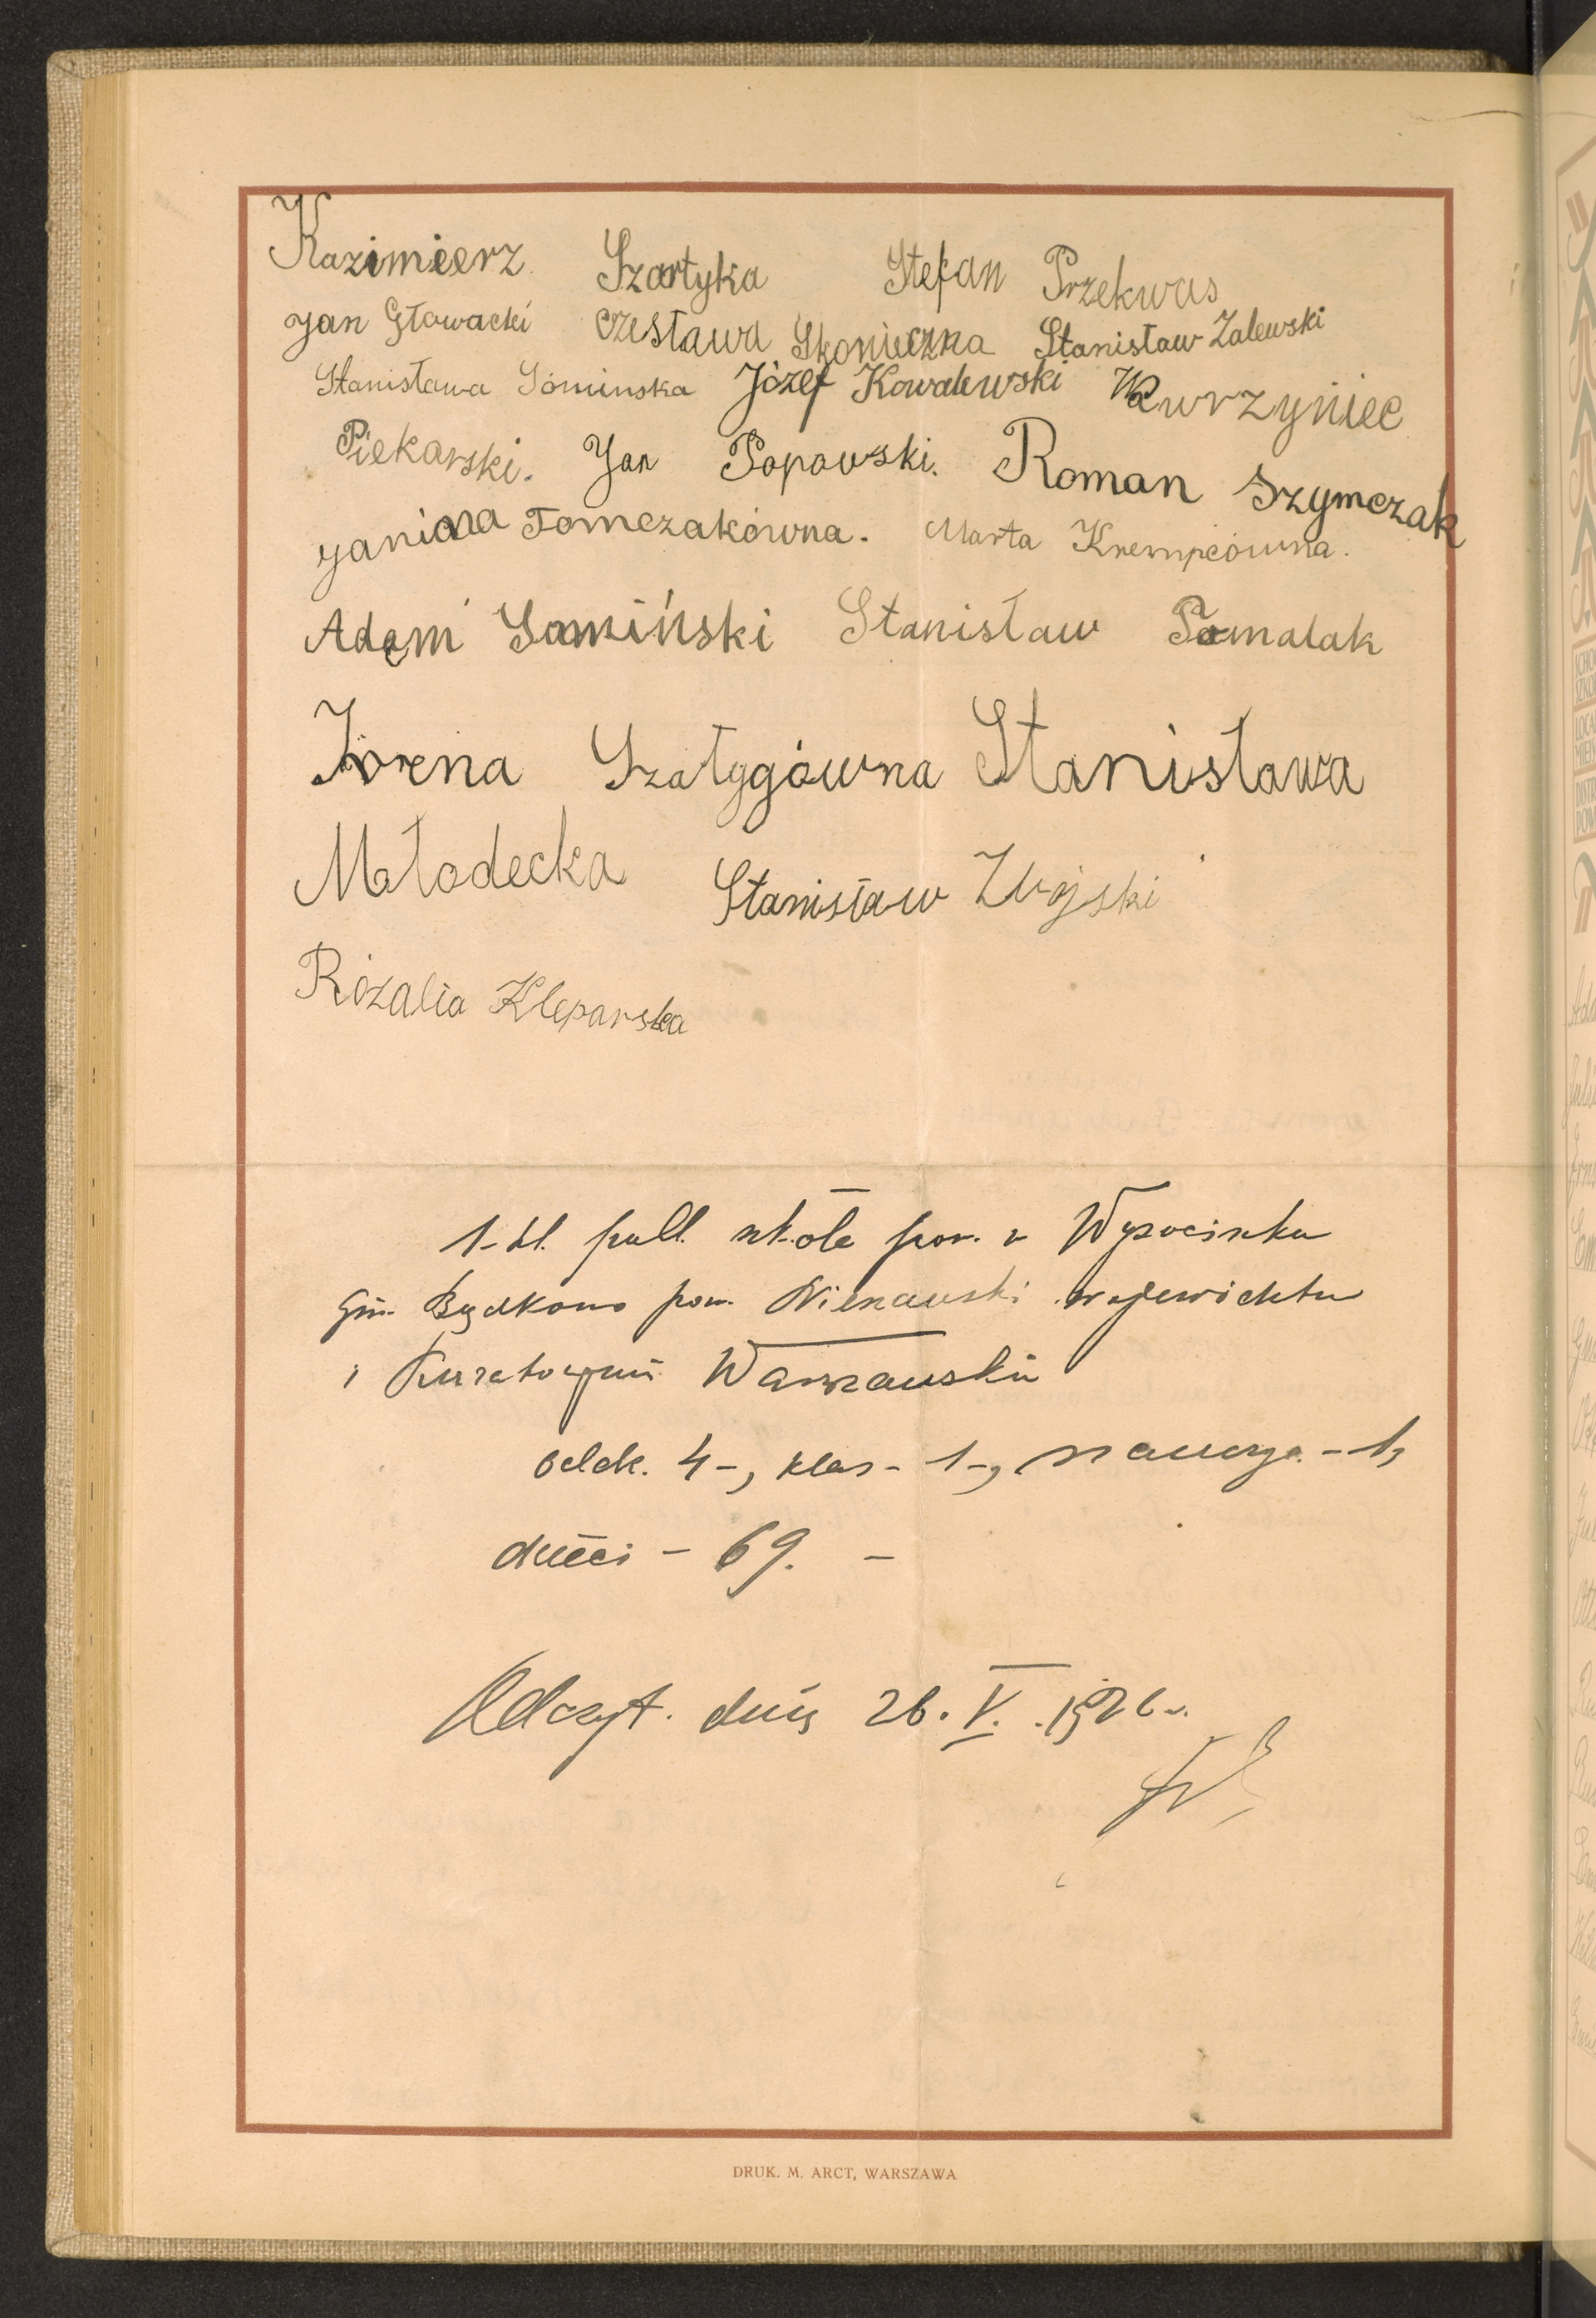 Kazimierz Szartyka Stefan Przekwas
Jan Głowacki Czesława Skonieczna Stanisław Zalewski
Stanisława Sominska Józef Kowalewski Wawrzyniec
Piekarski. Jan Popowski. Roman Szymczak
Janina Tomczakówna. Marta Krempcówna.
Adam Somiński Stanisław Pomalak
Irena Szałygówna Stanisława
Młodecka Stanisław Zwojski
Rózalia Kleparska
1-kl. szkoła pow. w Wysocinku
gm. Bądkowo pow. Nieszawski województwa
i Kuratorjum Warszawskie
oddz. 4-, klas - 1-, nauczyc. - 1,
dzieci - 69. -
Odczyt. dnia 26. V. 1926 r.
DRUK. M. ARCT, WARSZAWA